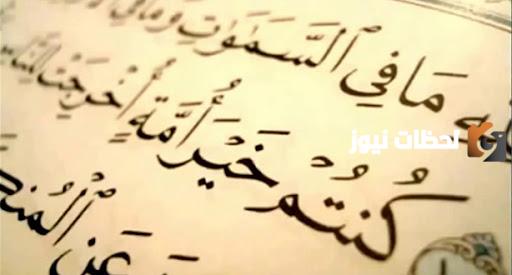 مَا فِي ٱلسَّمَٰوَٰتِ وَمَا فِي
كُنتُمْ خَيْرَ أُمَّةٍ أُخْرِجَتْ لِلنَّاسِ
عَنِ ٱلْمُنكَرِ
لحظات نيوز